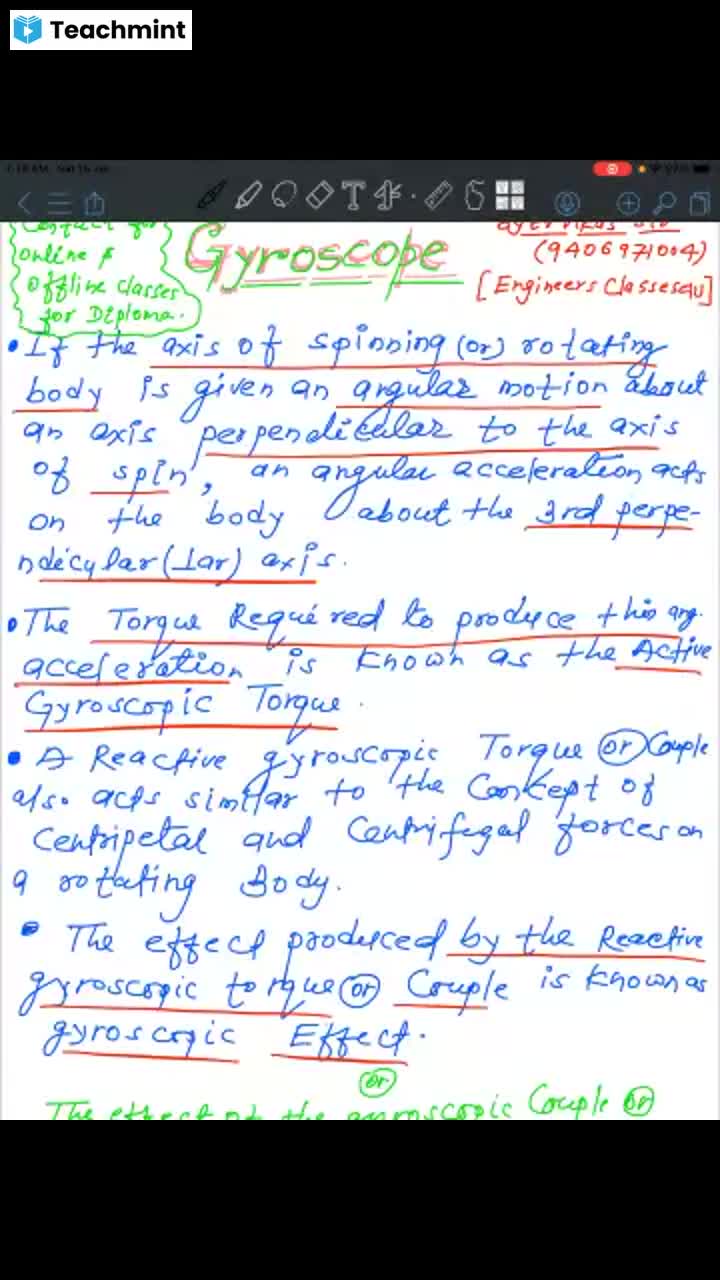 Teachmint
online &
offline classes
for Diploma.
Gyroscope
(9406971004)
[Engineers Classes4U]
• If the axis of spinning (or) rotating
body is given an angular motion about
an axis perpendicular to the axis
of spin, an angular acceleration acts
on the body about the 3rd perpe-
ndicular (⊥ar) axis.
• The Torque Required to produce this ang.
acceleration is known as the Active
Gyroscopic Torque.
• A Reactive gyroscopic Torque or Couple
also acts similar to the Concept of
Centripetal and Centrifugal forces on
a rotating Body.
• The effect produced by the Reactive
gyroscopic torque or Couple is known as
gyroscopic Effect.
or
The effect of the gyroscopic Couple or